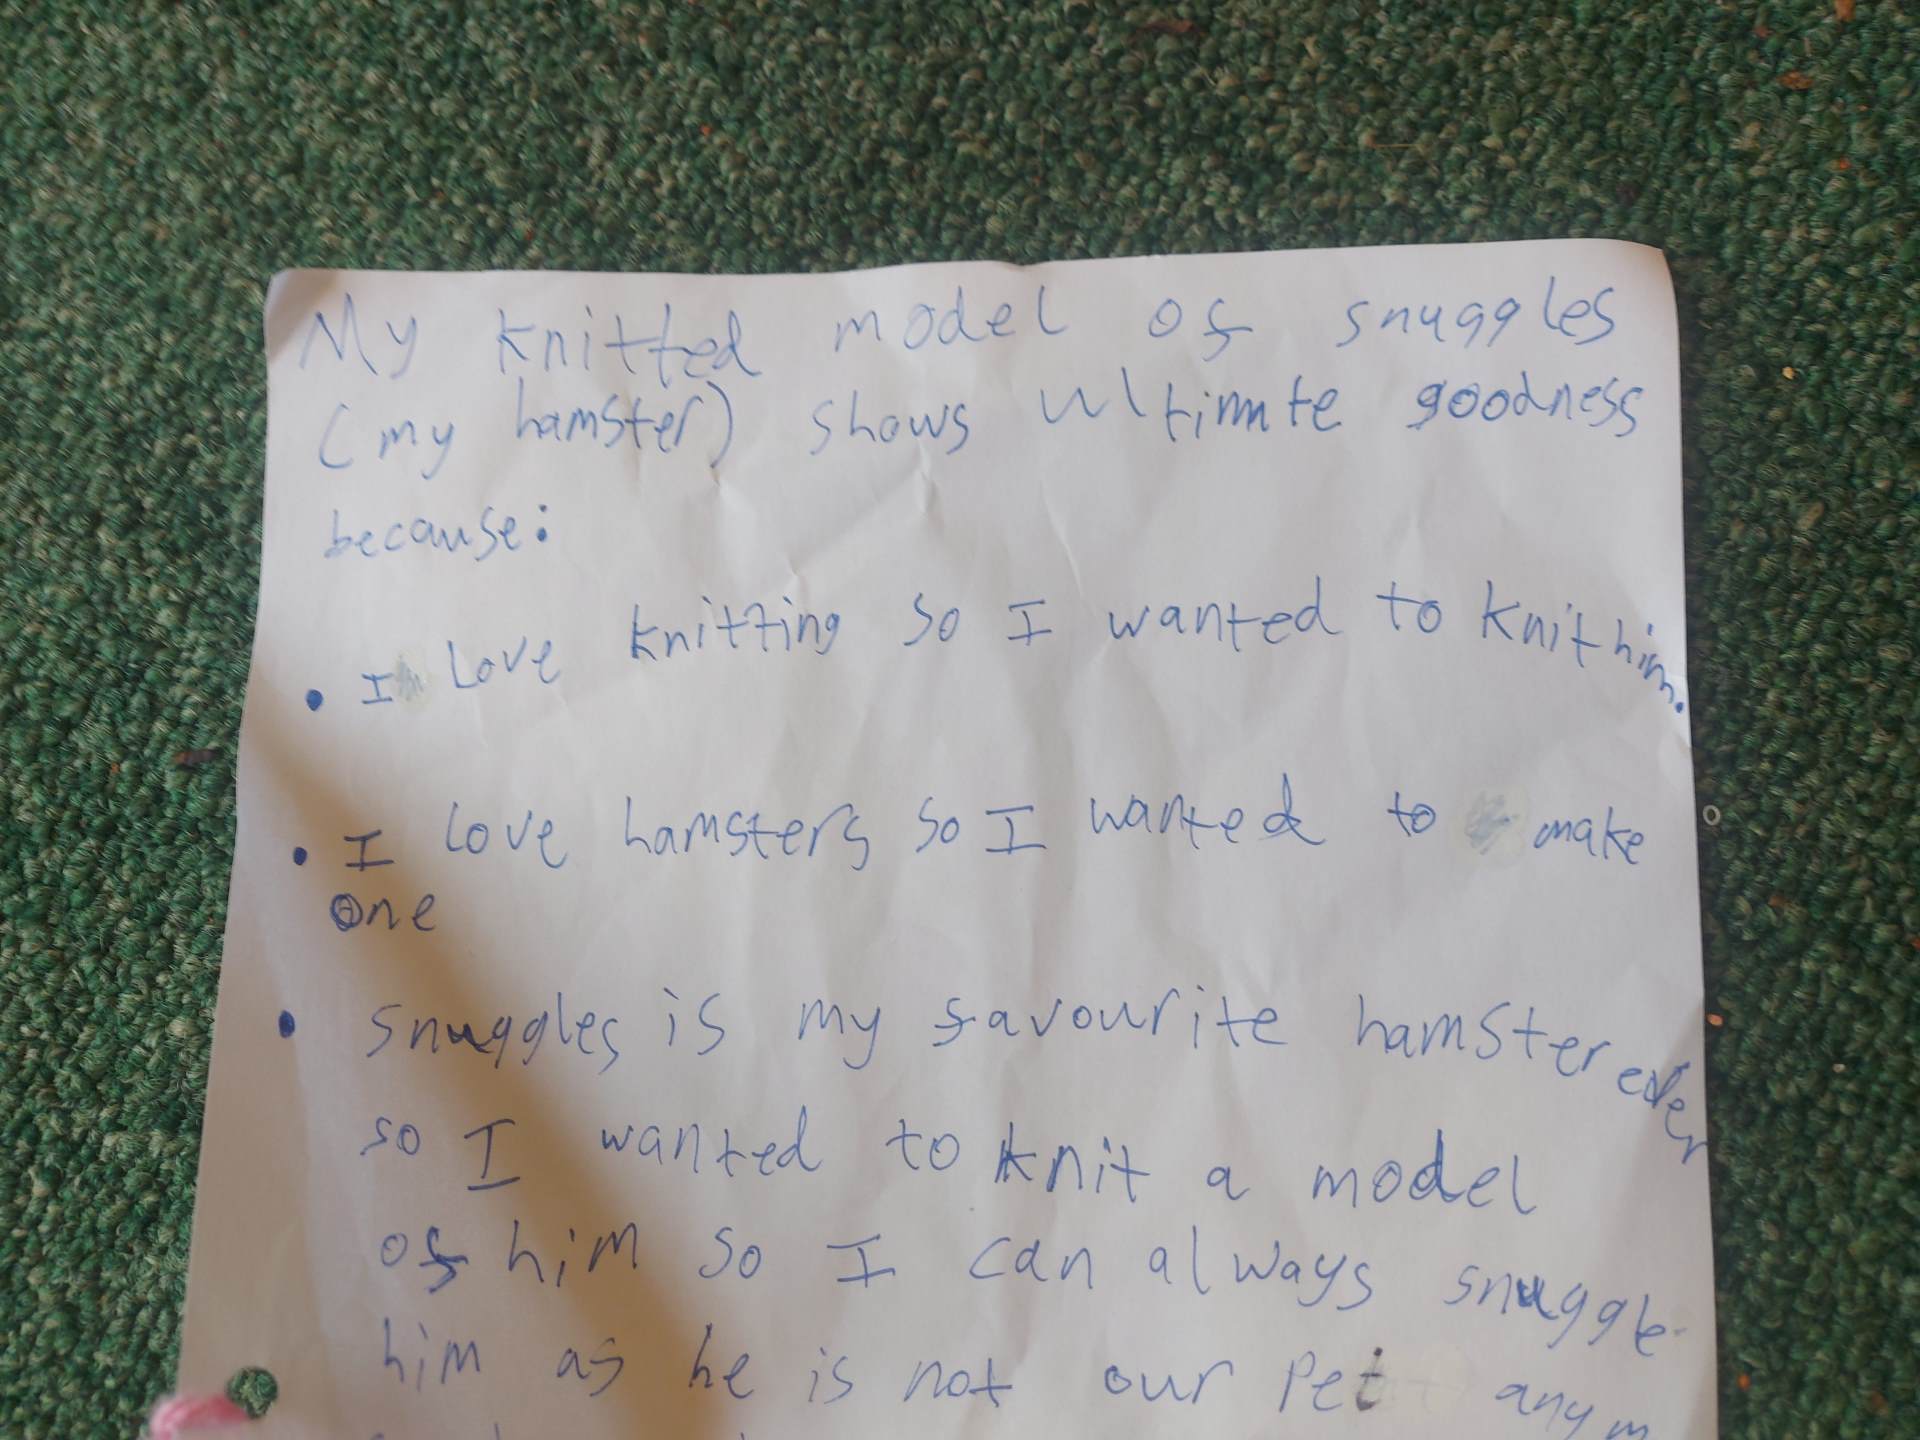 My knitted model of snuggles
(my hamster) shows ultimate goodness
because:
• I love knitting so I wanted to knit him.
• I love hamsters so I wanted to make
one
• snuggles is my favourite hamster ever
so I wanted to knit a model
of him so I can always snuggle
him as he is not our pet anym